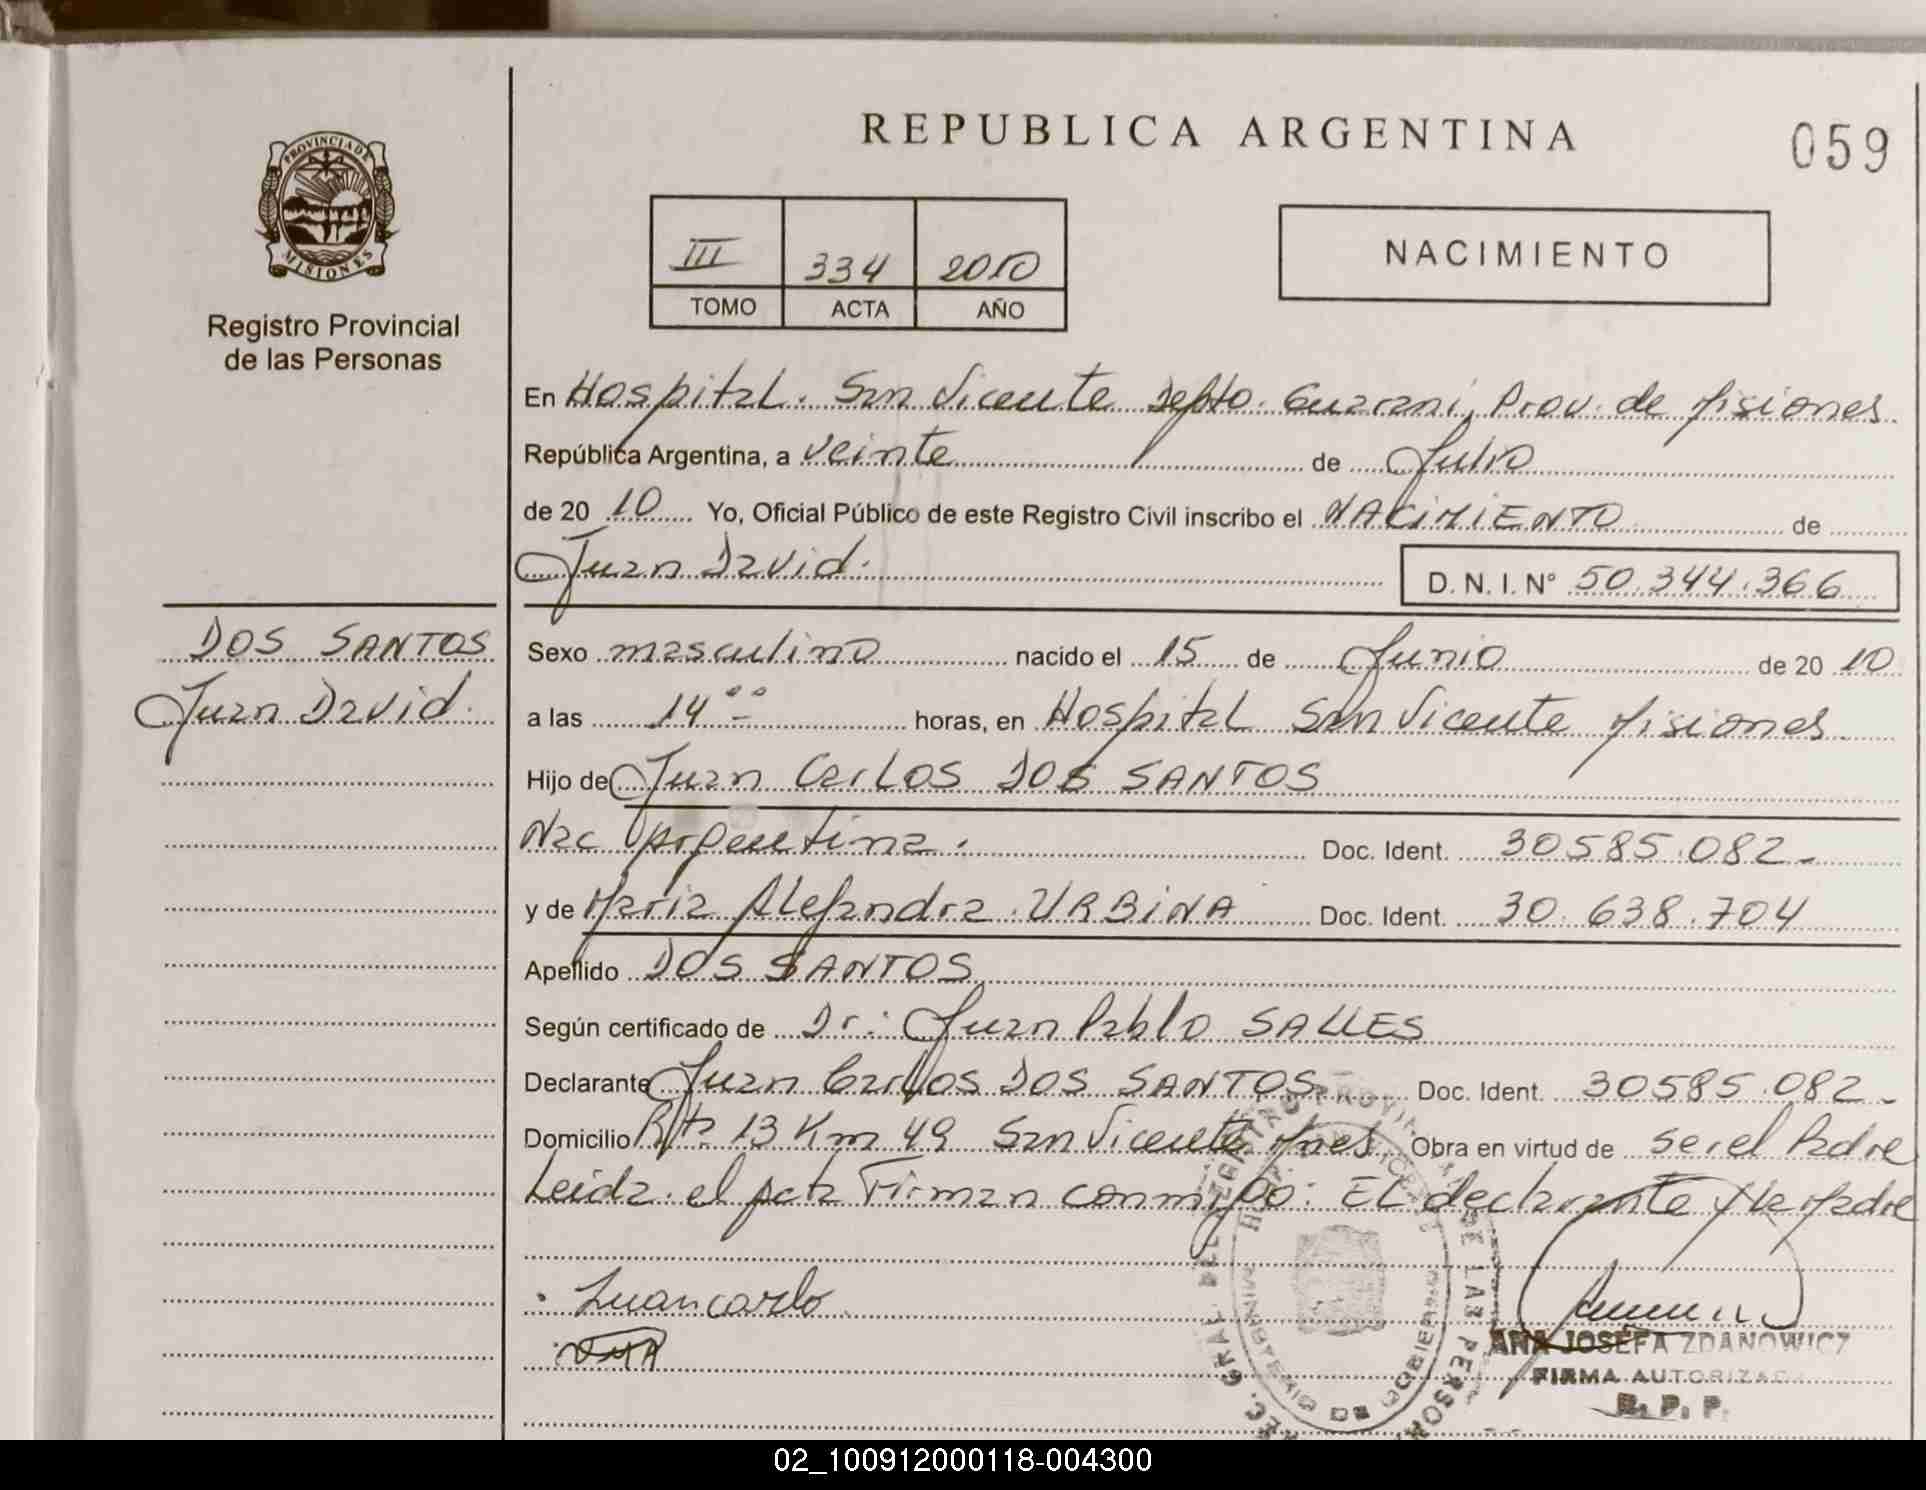 REPUBLICA ARGENTINA
059
PROVINCIA DE
MISIONES
Registro Provincial
de las Personas
III 334 2010
TOMO ACTA AÑO
NACIMIENTO
En Hospital. San Vicente Depto. Guarani, Prov. de Misiones
República Argentina, a veinte de Julio
de 20 10 Yo, Oficial Público de este Registro Civil inscribo el NACIMIENTO de
Juan David.
D. N. I. Nº 50.344.366
DOS SANTOS
Juan David.
Sexo masculino nacido el 15 de Junio de 20 10
a las 14 00 horas, en Hospital San Vicente Misiones
Hijo de Juan Carlos DOS SANTOS
Nac Argentina. Doc. Ident. 30585.082-
y de Maria Alejandra URBINA Doc. Ident. 30.638.704
Apellido DOS SANTOS
Según certificado de Dr: Juan Pablo SALLES
Declarante Juan Carlos DOS SANTOS Doc. Ident. 30585.082-
Domicilio Rta 13 Km 49 San Vicente Mnes Obra en virtud de ser el Padre
Leida el acta Firman conmigo: El declarante y la Madre
Luancarlo
ANA JOSEFA ZDANOWICZ
FIRMA AUTORIZADA
R. P. P.
02_100912000118-004300